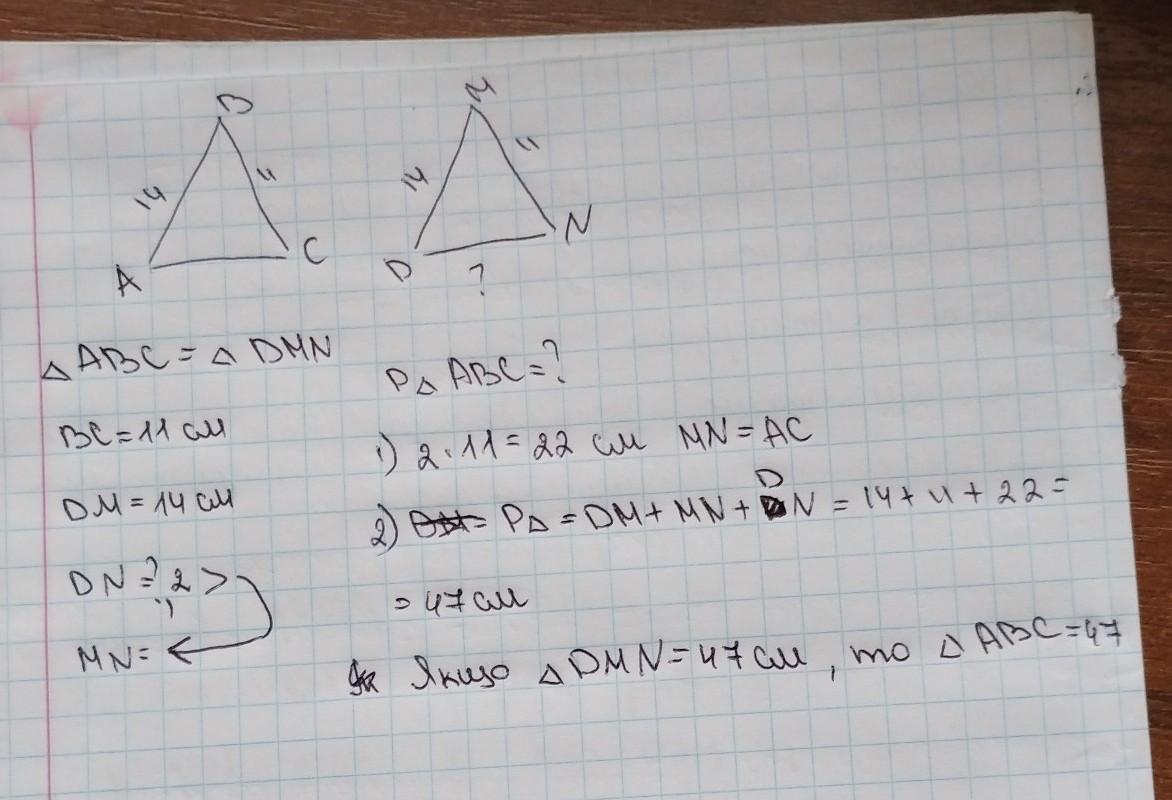 B M
14 11 14 11
A C D N
?
△ ABC = △ DMN
P△ ABC = ?
BC = 11 см
1) 2 · 11 = 22 см MN = AC
DM = 14 см
2) P△ = DM + MN + DN = 14 + 11 + 22 =
DN = ? 2 >
= 47 см
MN = ←
Якщо △ DMN = 47 см, то △ ABC = 47